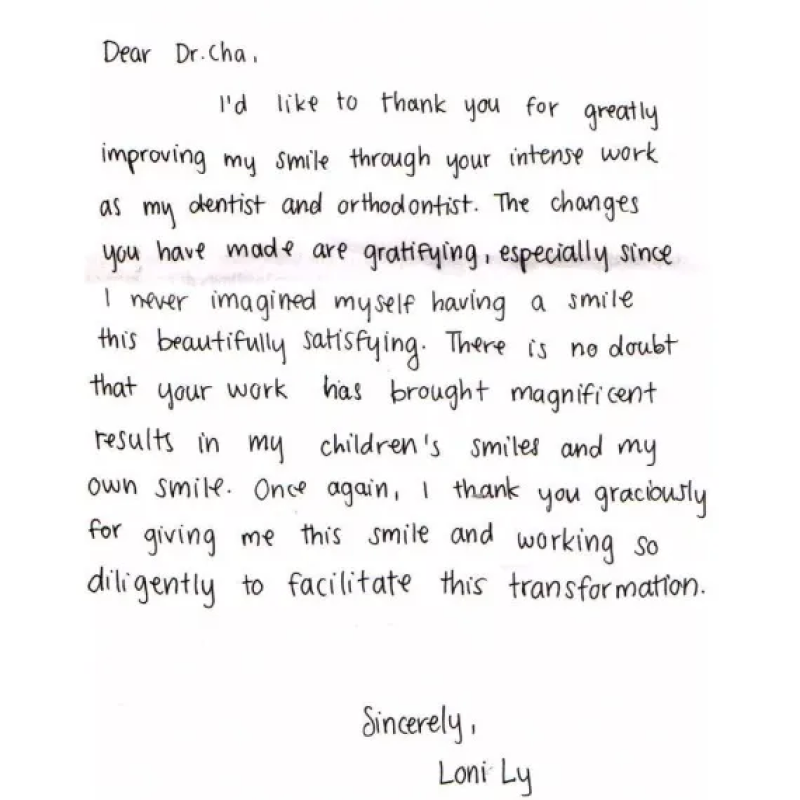 Dear Dr. Cha,
I'd like to thank you for greatly
improving my smile through your intense work
as my dentist and orthodontist. The changes
you have made are gratifying, especially since
I never imagined myself having a smile
this beautifully satisfying. There is no doubt
that your work has brought magnificent
results in my children's smiles and my
own smile. Once again, I thank you graciously
for giving me this smile and working so
diligently to facilitate this transformation.
Sincerely,
Loni Ly